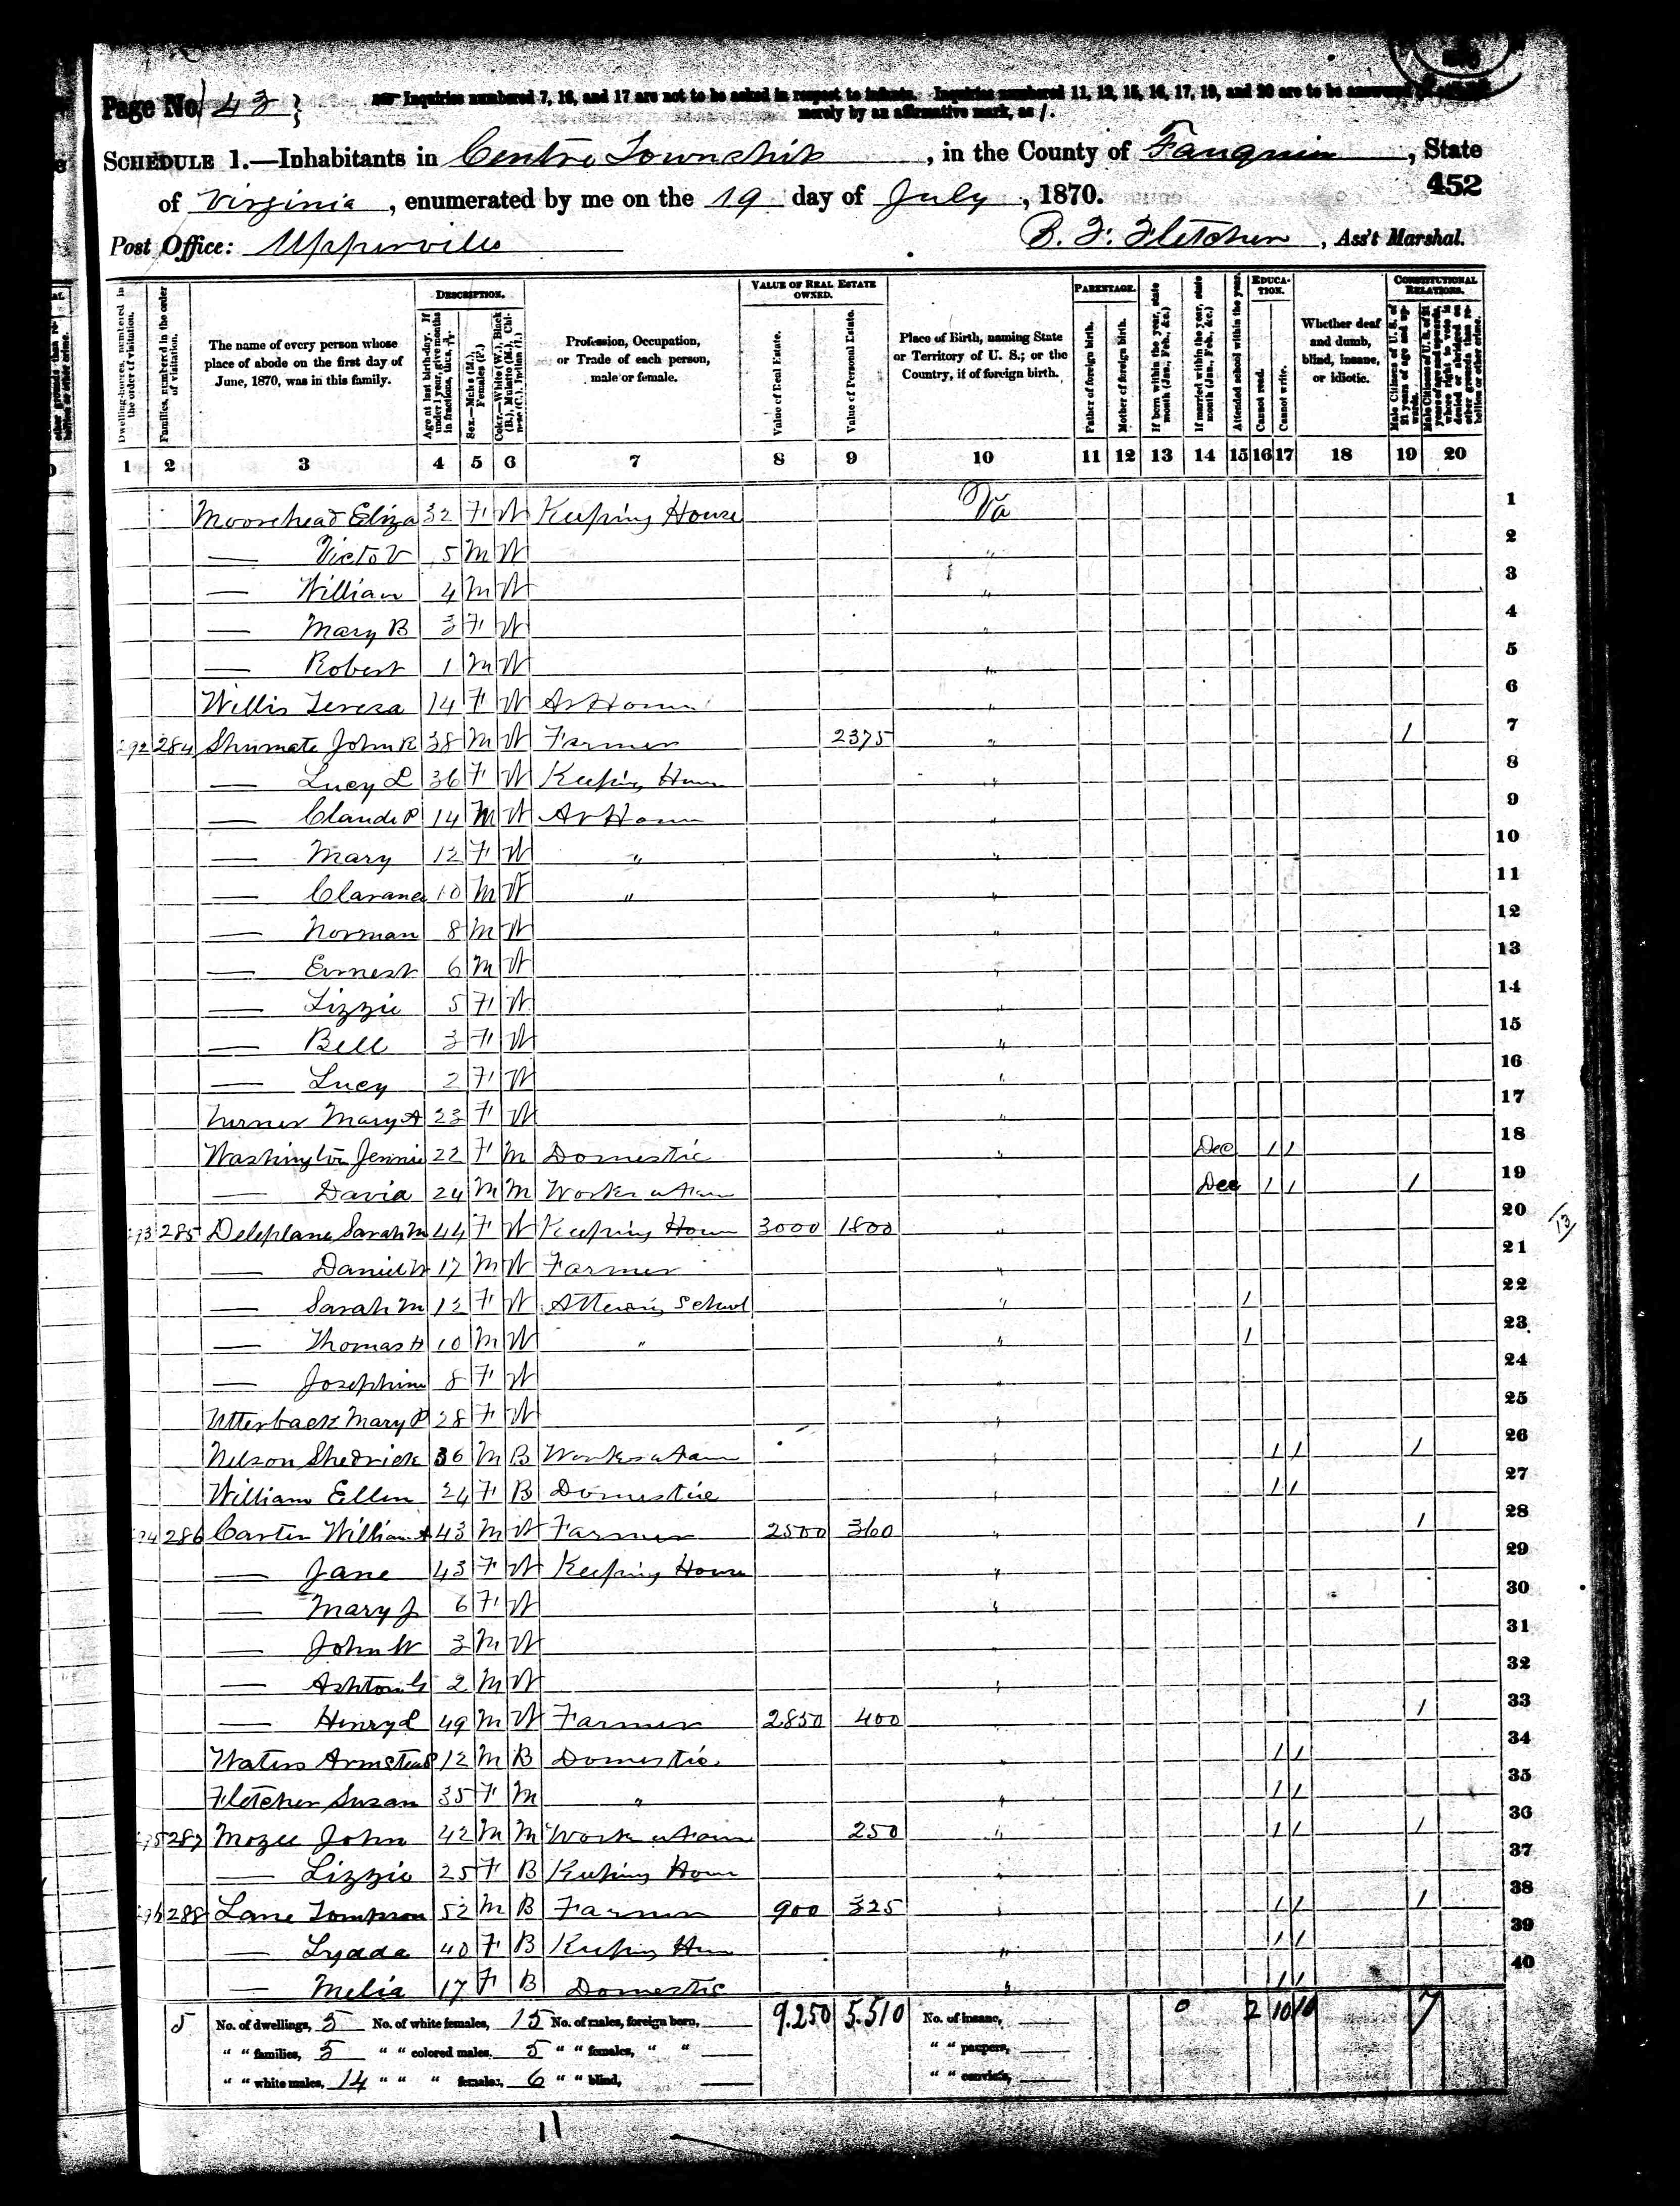 Page No. 43
Inquiries numbered 7, 16, and 17 are not to be asked in respect to infants. Inquiries numbered 11, 12, 15, 16, 17, 19, and 20 are to be answered
merely by an affirmative mark, as /.
SCHEDULE 1.—Inhabitants in Centre Township, in the County of Fauquier, State
452
of Virginia, enumerated by me on the 19 day of July, 1870.
Post Office: Upperville
B. F. Fletcher, Ass't Marshal.
DESCRIPTION.
VALUE OF REAL ESTATE OWNED.
PARENTAGE.
EDUCATION.
CONSTITUTIONAL RELATIONS.
Dwelling-houses, numbered in the order of visitation.
Families, numbered in the order of visitation.
The name of every person whose place of abode on the first day of June, 1870, was in this family.
Age at last birth-day. If under 1 year, give months in fractions, thus,
Sex.—Males (M.), Females (F.)
Color.—White (W.), Black (B.), Mulatto (M.), Chinese (C.), Indian (I.)
Profession, Occupation, or Trade of each person, male or female.
Value of Real Estate.
Value of Personal Estate.
Place of Birth, naming State or Territory of U. S.; or the Country, if of foreign birth.
Father of foreign birth.
Mother of foreign birth.
If born within the year, state month (Jan., Feb., &c.)
If married within the year, state month (Jan., Feb., &c.)
Attended school within the year.
Cannot read.
Cannot write.
Whether deaf and dumb, blind, insane, or idiotic.
Male Citizens of U. S. of 21 years of age and upwards.
Male Citizens of U. S. of 21 years of age and upwards, whose right to vote is denied or abridged on other grounds than rebellion or other crime.
1 2 3 4 5 6 7 8 9 10 11 12 13 14 15 16 17 18 19 20
Moorehead Eliza 32 F W Keeping House Va 1
— Victor 5 M W " 2
— William 4 M W " 3
— Mary B 3 F W " 4
— Robert 1 M W " 5
Willis Teresa 14 F W At Home " 6
292 284 Shumate John R 38 M W Farmer 2375 " / 7
— Lucy L 36 F W Keeping House " 8
— Claude P 14 M W At Home " 9
— Mary 12 F W " " 10
— Clarance 10 M W " " 11
— Norman 8 M W " 12
— Ernest 6 M W " 13
— Lizzie 5 F W " 14
— Bell 3 F W " 15
— Lucy 2 F W " 16
Turner Mary A 23 F W " 17
Washington Jennie 22 F M Domestic " Dec / / 18
— David 24 M M Works on Farm " Dec / / / 19
293 285 Deleplane Sarah M 44 F W Keeping House 3000 1800 " 20
— Daniel W 17 M W Farmer " 21
— Sarah M 12 F W Attending School " / 22
— Thomas H 10 M W " " / 23
— Josephine 8 F W " 24
Utterback Mary P 28 F W " 25
Nelson Shedrick 36 M B Works on Farm " / / / 26
William Ellen 24 F B Domestic " / / 27
294 286 Carter William A 43 M W Farmer 2500 360 " / 28
— Jane 43 F W Keeping House " 29
— Mary J 6 F W " 30
— John W 3 M W " 31
— Ashton G 2 M W " 32
— Henry C 49 M W Farmer 2850 400 / 33
Waters Armstead 12 M B Domestic " / / 34
Fletcher Susan 35 F M " " / / 35
295 287 Mozee John 42 M M Work on Farm 250 " / / / 36
— Lizzie 25 F B Keeping House " 37
296 288 Lane Tompson 52 M B Farmer 900 325 " / / / 38
— Lydda 40 F B Keeping House " / / 39
— Melia 17 F B Domestic " / / 40
13
5 No. of dwellings, 5 No. of white females, 15 No. of males, foreign born, 9.250 5.510 No. of insane, 0 2 10 10 7
" " families, 5 " " colored males, 5 " " females, " " " " paupers,
" " white males, 14 " " " females, 6 " " blind, " " convicts,
11